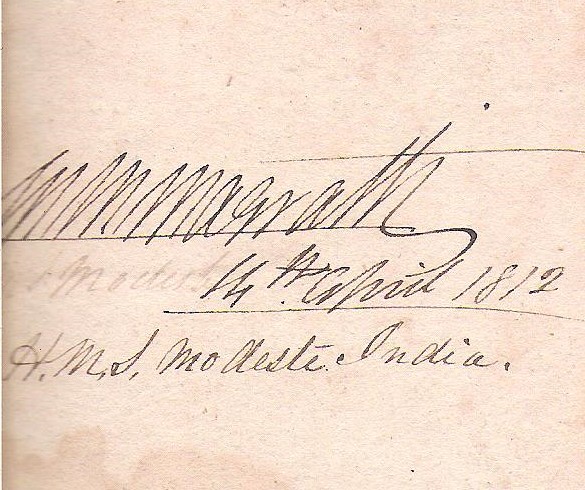 Wm Magrath
14th April 1812
H.M.S. Modeste. India.